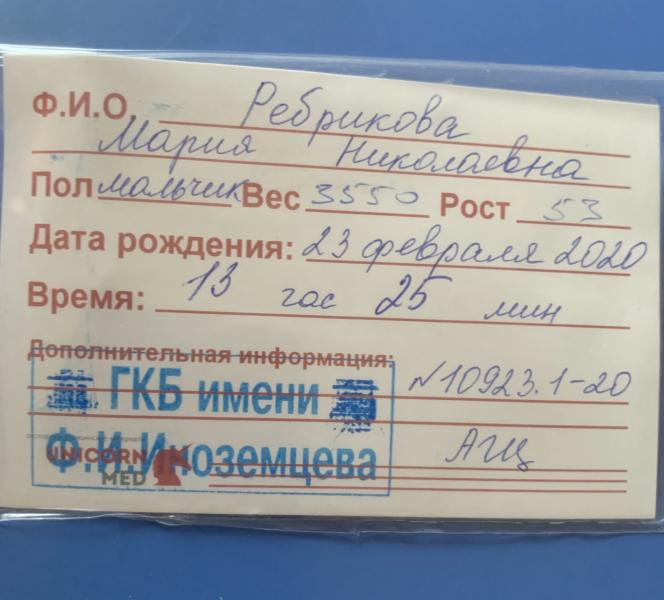 Ф.И.О. Ребрикова
Мария Николаевна
Пол мальчик Вес 3550 Рост 53
Дата рождения: 23 февраля 2020
Время: 13 час 25 мин
Дополнительная информация:
ГКБ имени N10923.1-20
Ф.И.Иноземцева АГЦ
UNICORN
MED